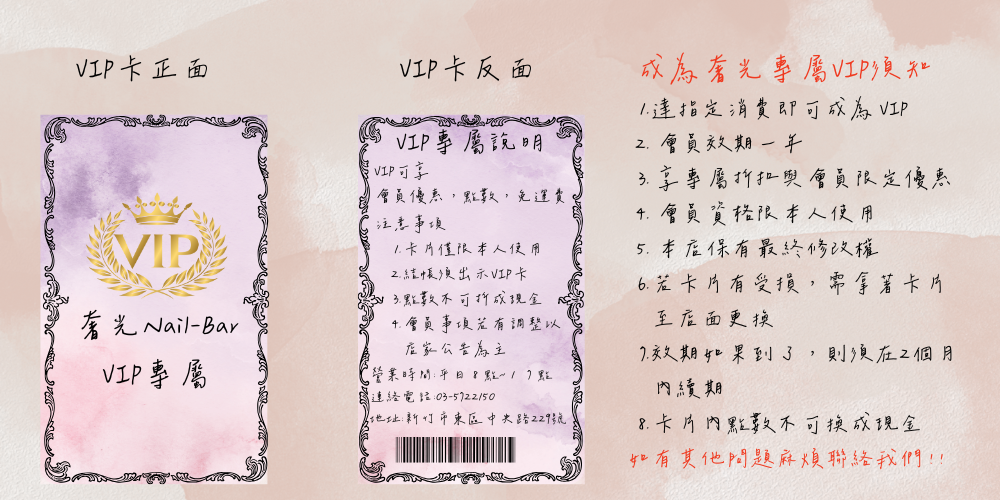 VIP卡正面
VIP
奢光Nail-Bar
VIP專屬
VIP卡反面
VIP專屬說明
VIP可享
會員優惠，點數，免運費
注意事項
1.卡片僅限本人使用
2.結帳須出示VIP卡
3.點數不可折成現金
4.會員事項若有調整以
店家公告為主
營業時間:平日8點~17點
連絡電話:03-5722150
地址:新竹市東區中央路229號
成為奢光專屬VIP須知
1.達指定消費即可成為VIP
2.會員效期一年
3.享專屬折扣與會員限定優惠
4.會員資格限本人使用
5.本店保有最終修改權
6.若卡片有受損，需拿著卡片
至店面更換
7.效期如果到了，則須在2個月
內續期
8.卡片內點數不可換成現金
如有其他問題麻煩聯絡我們!!